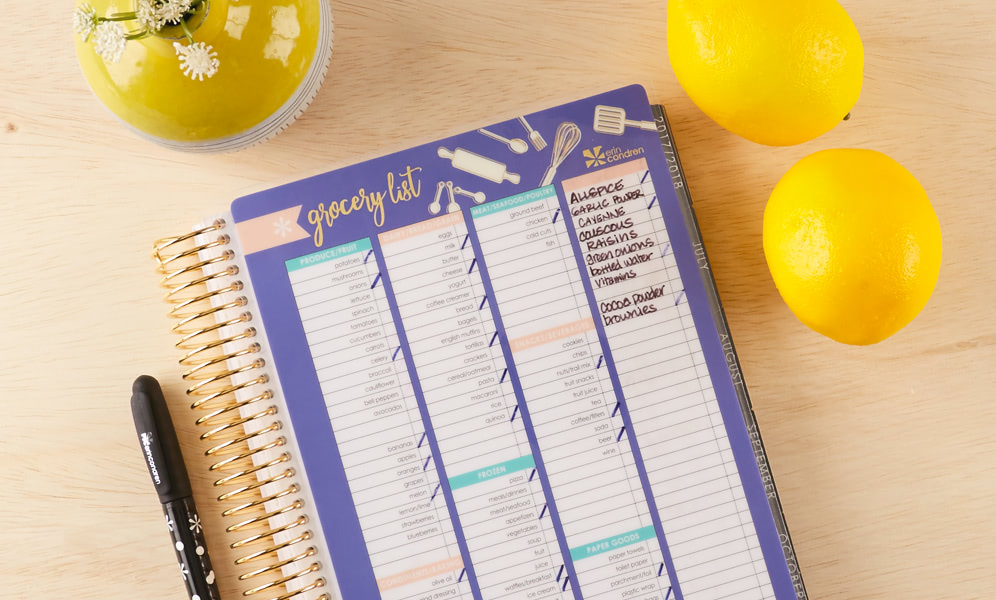 grocery list
erin condren
PRODUCE/FRUIT
potatoes
mushrooms
onions
lettuce
spinach
tomatoes
cucumbers
carrots
celery
broccoli
cauliflower
bell peppers
avocados
bananas
apples
oranges
grapes
melon
lemon/lime
strawberries
blueberries
olive oil
eggs
milk
butter
cheese
yogurt
coffee creamer
bread
bagels
english muffins
tortillas
crackers
cereal/oatmeal
pasta
macaroni
rice
quinoa
FROZEN
pizza
meals/dinners
meat/seafood
appetizers
vegetables
soup
fruit
juice
waffles/breakfast
ice cream
MEAT/SEAFOOD/POULTRY
ground beef
chicken
cold cuts
fish
SNACKS/BEVERAGES
cookies
chips
nuts/trail mix
fruit snacks
fruit juice
tea
coffee/filters
soda
beer
wine
PAPER GOODS
paper towels
toilet paper
parchment/foil
plastic wrap
ALLSPICE
GARLIC POWDER
CAYENNE
COUSCOUS
RAISINS
green onions
bottled water
vitamins
cocoa powder
brownies
2017/2018
JULY
AUGUST
SEPTEMBER
OCTOBER
erincondren